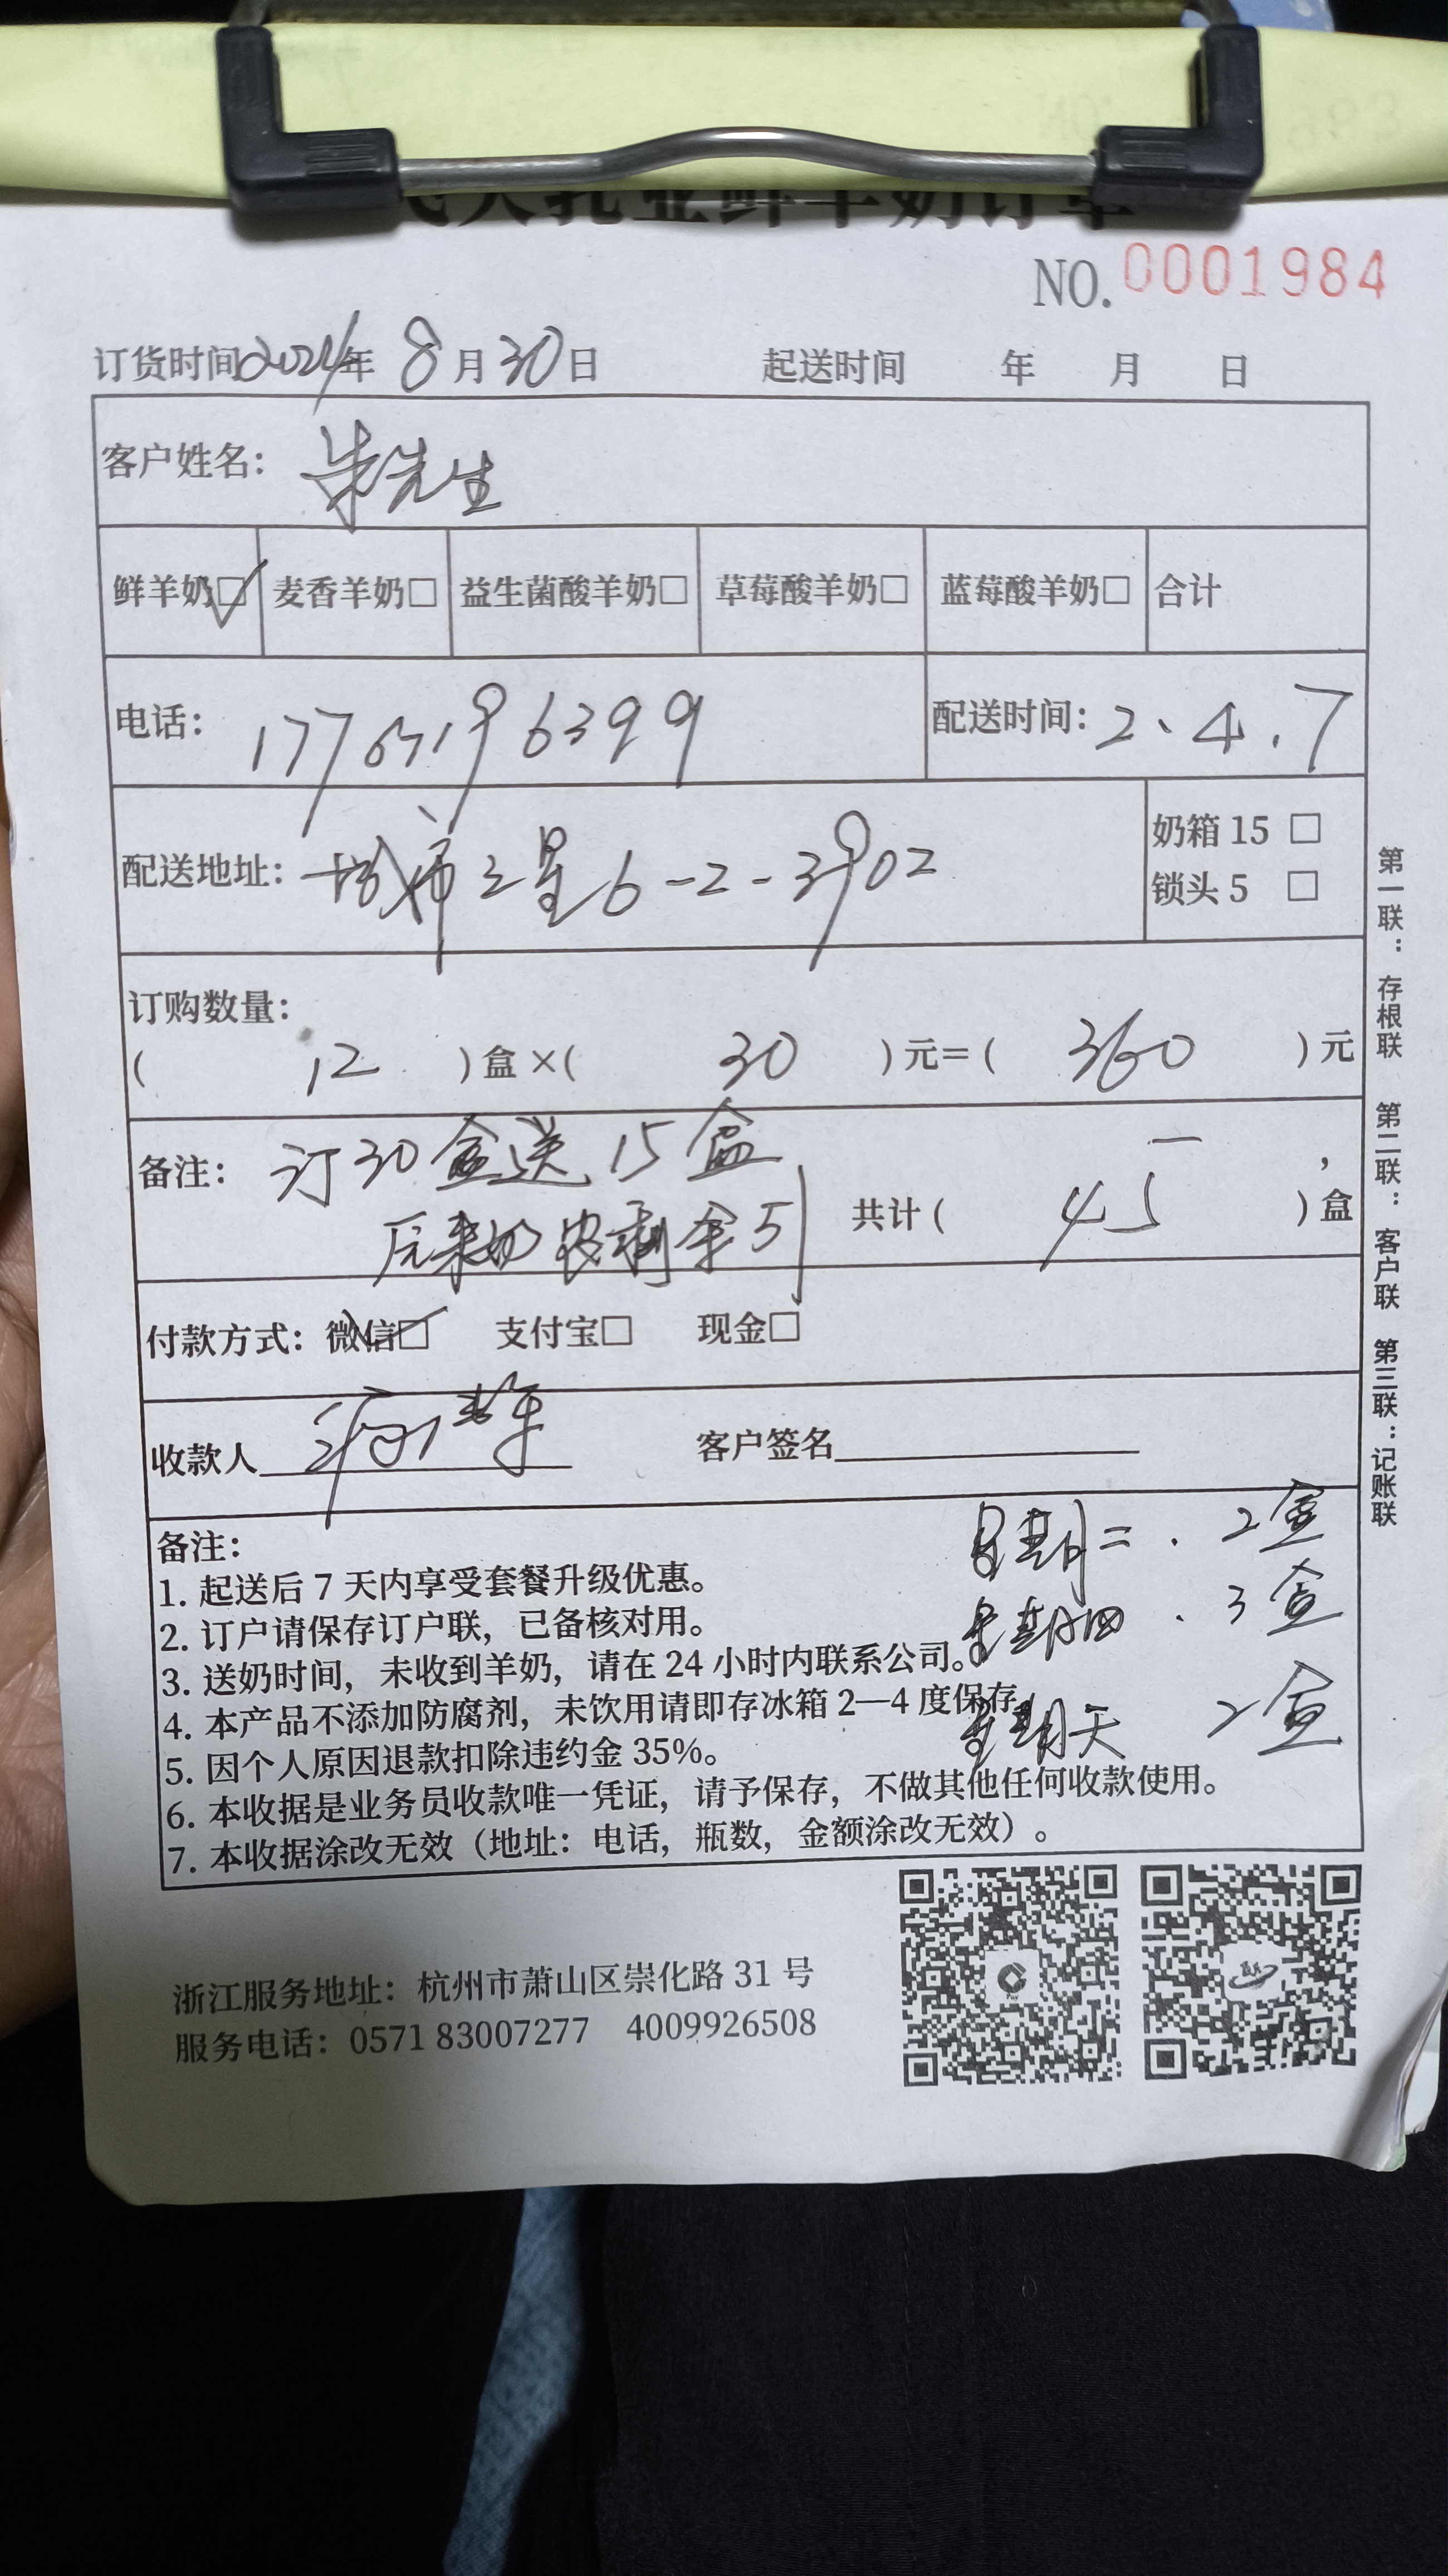 乳业鲜羊奶订单
NO.0001984
订货时间2024年 8月30日 起送时间 年 月 日
客户姓名：朱先生
鲜羊奶☑ 麦香羊奶□ 益生菌酸羊奶□ 草莓酸羊奶□ 蓝莓酸羊奶□ 合计
电话： 配送时间：2、4.7
配送地址：城市之星6-2-3902
奶箱 15 □
锁头 5 □
订购数量：
( 12 ) 盒 ×( 30 ) 元＝( 360 ) 元
备注：订30盒送15盒
共计 ( 45 ) 盒
付款方式：微信☑ 支付宝□ 现金□
收款人 客户签名
备注：
1. 起送后 7 天内享受套餐升级优惠。
2. 订户请保存订户联，已备核对用。
3. 送奶时间，未收到羊奶，请在 24 小时内联系公司。
4. 本产品不添加防腐剂，未饮用请即存冰箱 2—4 度保存
5. 因个人原因退款扣除违约金 35%。
6. 本收据是业务员收款唯一凭证，请予保存，不做其他任何收款使用。
7. 本收据涂改无效（地址：电话，瓶数，金额涂改无效）。
星期二．2盒
星期四．3盒
星期天 2盒
第一联：存根联 第二联：客户联 第三联：记账联
浙江服务地址：杭州市萧山区崇化路 31 号
服务电话：0571 83007277 4009926508